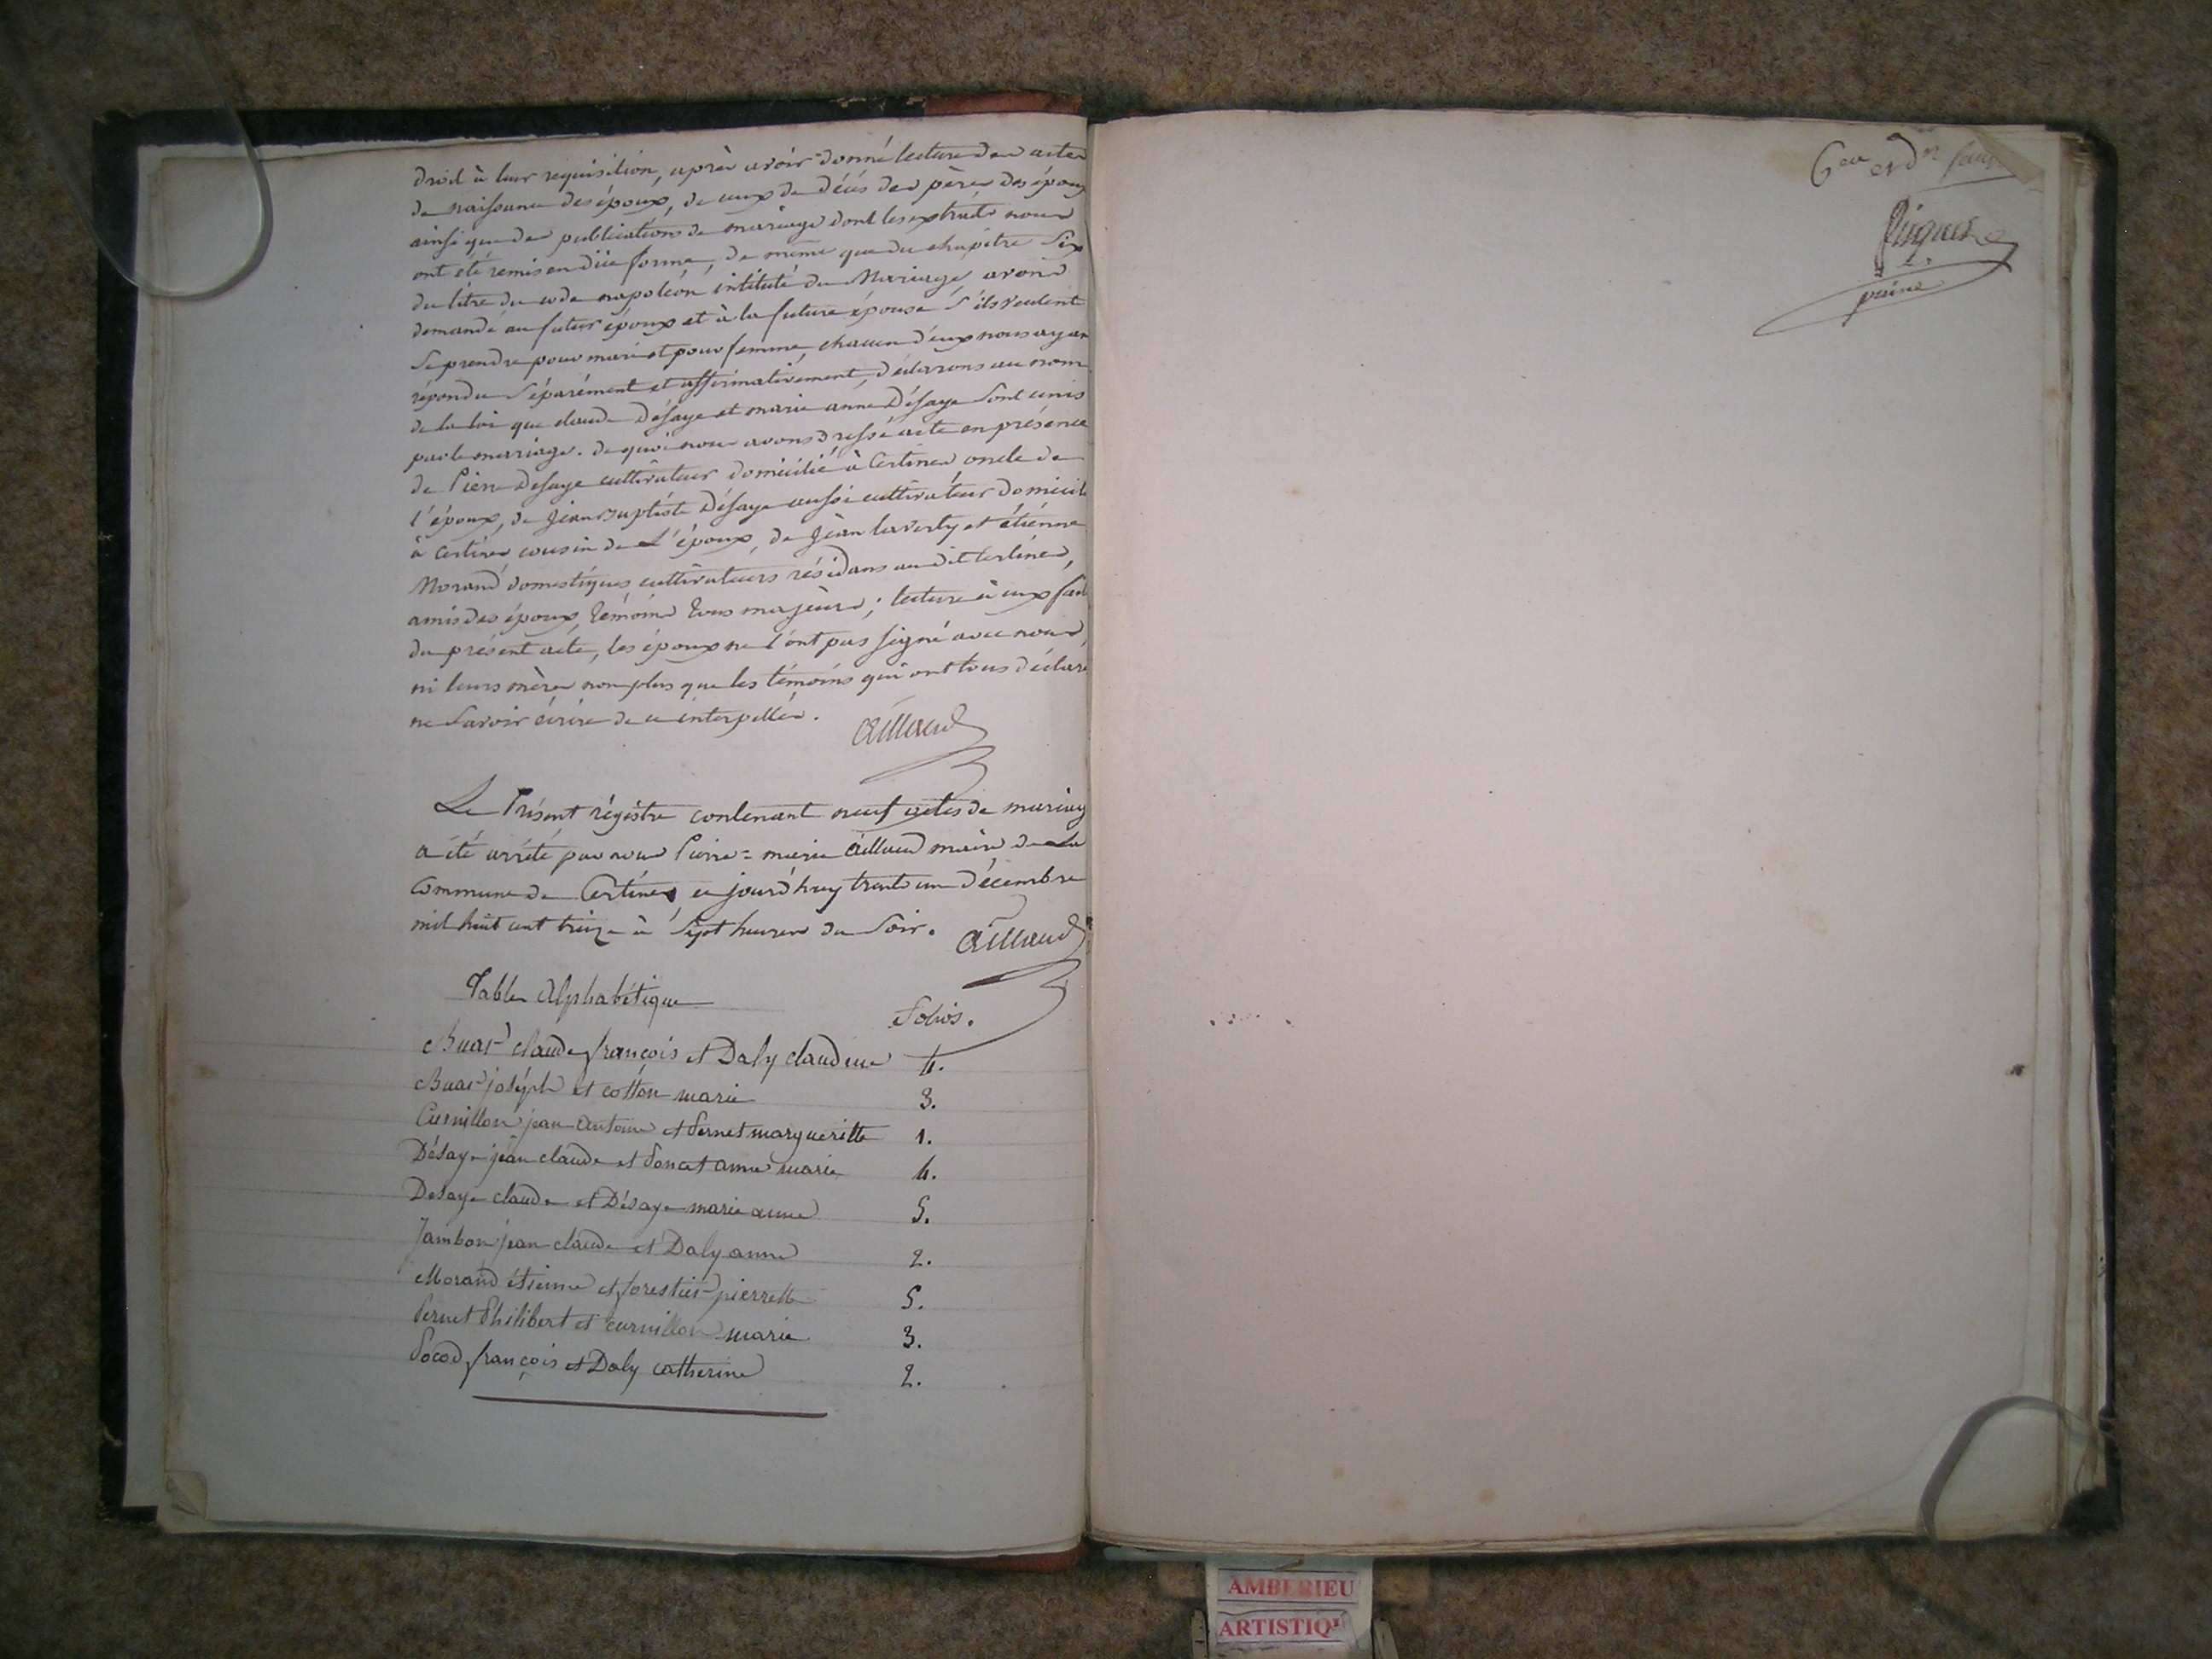 droit à leur requisition, après avoir donné lecture des actes
de naissance des époux, de ceux de décés des pères des époux
ainsi que des publications de mariage dont les extraits nous
ont été remis en düe forme, de même que du chapitre Six
du titre du code napoléon intitulé du Mariage, avons
demandé au futur époux et à la future épouse s'ils veulent
se prendre pour mari et pour femme, chacun d'eux nous ayan
répondu Séparément et affirmativement, déclarons au nom
de la loi que claude Désaye et marie anne Désaye Sont unis
par le mariage. de quoi nous avons dressé acte en présence
de Pierre Desaye cultivateur domicilié à Certines oncle de
l'époux, de jean Baptiste Désaye aussi cultivateur domicili
à Certines cousin de L'époux, de jean laverty et étiénne
Morand domestiques cultivateurs résidans au dit Certines,
amis des époux, témoins tous majeurs; lecture à eux fait
du présent acte, les époux ne l'ont pas signé avec nous,
ni leurs mères non plus que les témoins qui ont tous déclaré
ne Savoir écrire de ce interpellés.
Aillaud
Le Présent régistre contenant neuf actes de mariag
a été arrêté par nous Pierre=marie Aillaud maire de La
Commune de Certines ce jourd'huy trente un Décembre
mil huit cent treize à Sept heures du Soir.
Aillaud
Table Alphabétique
Folios.
Buat claude françois et Daly claudine 4.
Buat joséph et cotton marie 3.
Curnillon jean Antoine et Pernet margueritte 1.
Désaye jean claude et Poncet anne marie 4.
Desaye claude et Désaye marie anne 5.
Jambon jean claude et Daly anne 2.
Morand étienne et forestier pierrette 5.
Pernet Philibert et curnillon marie 3.
Pocod françois et Daly catherine 2.
AMBERIEU
ARTISTIQU